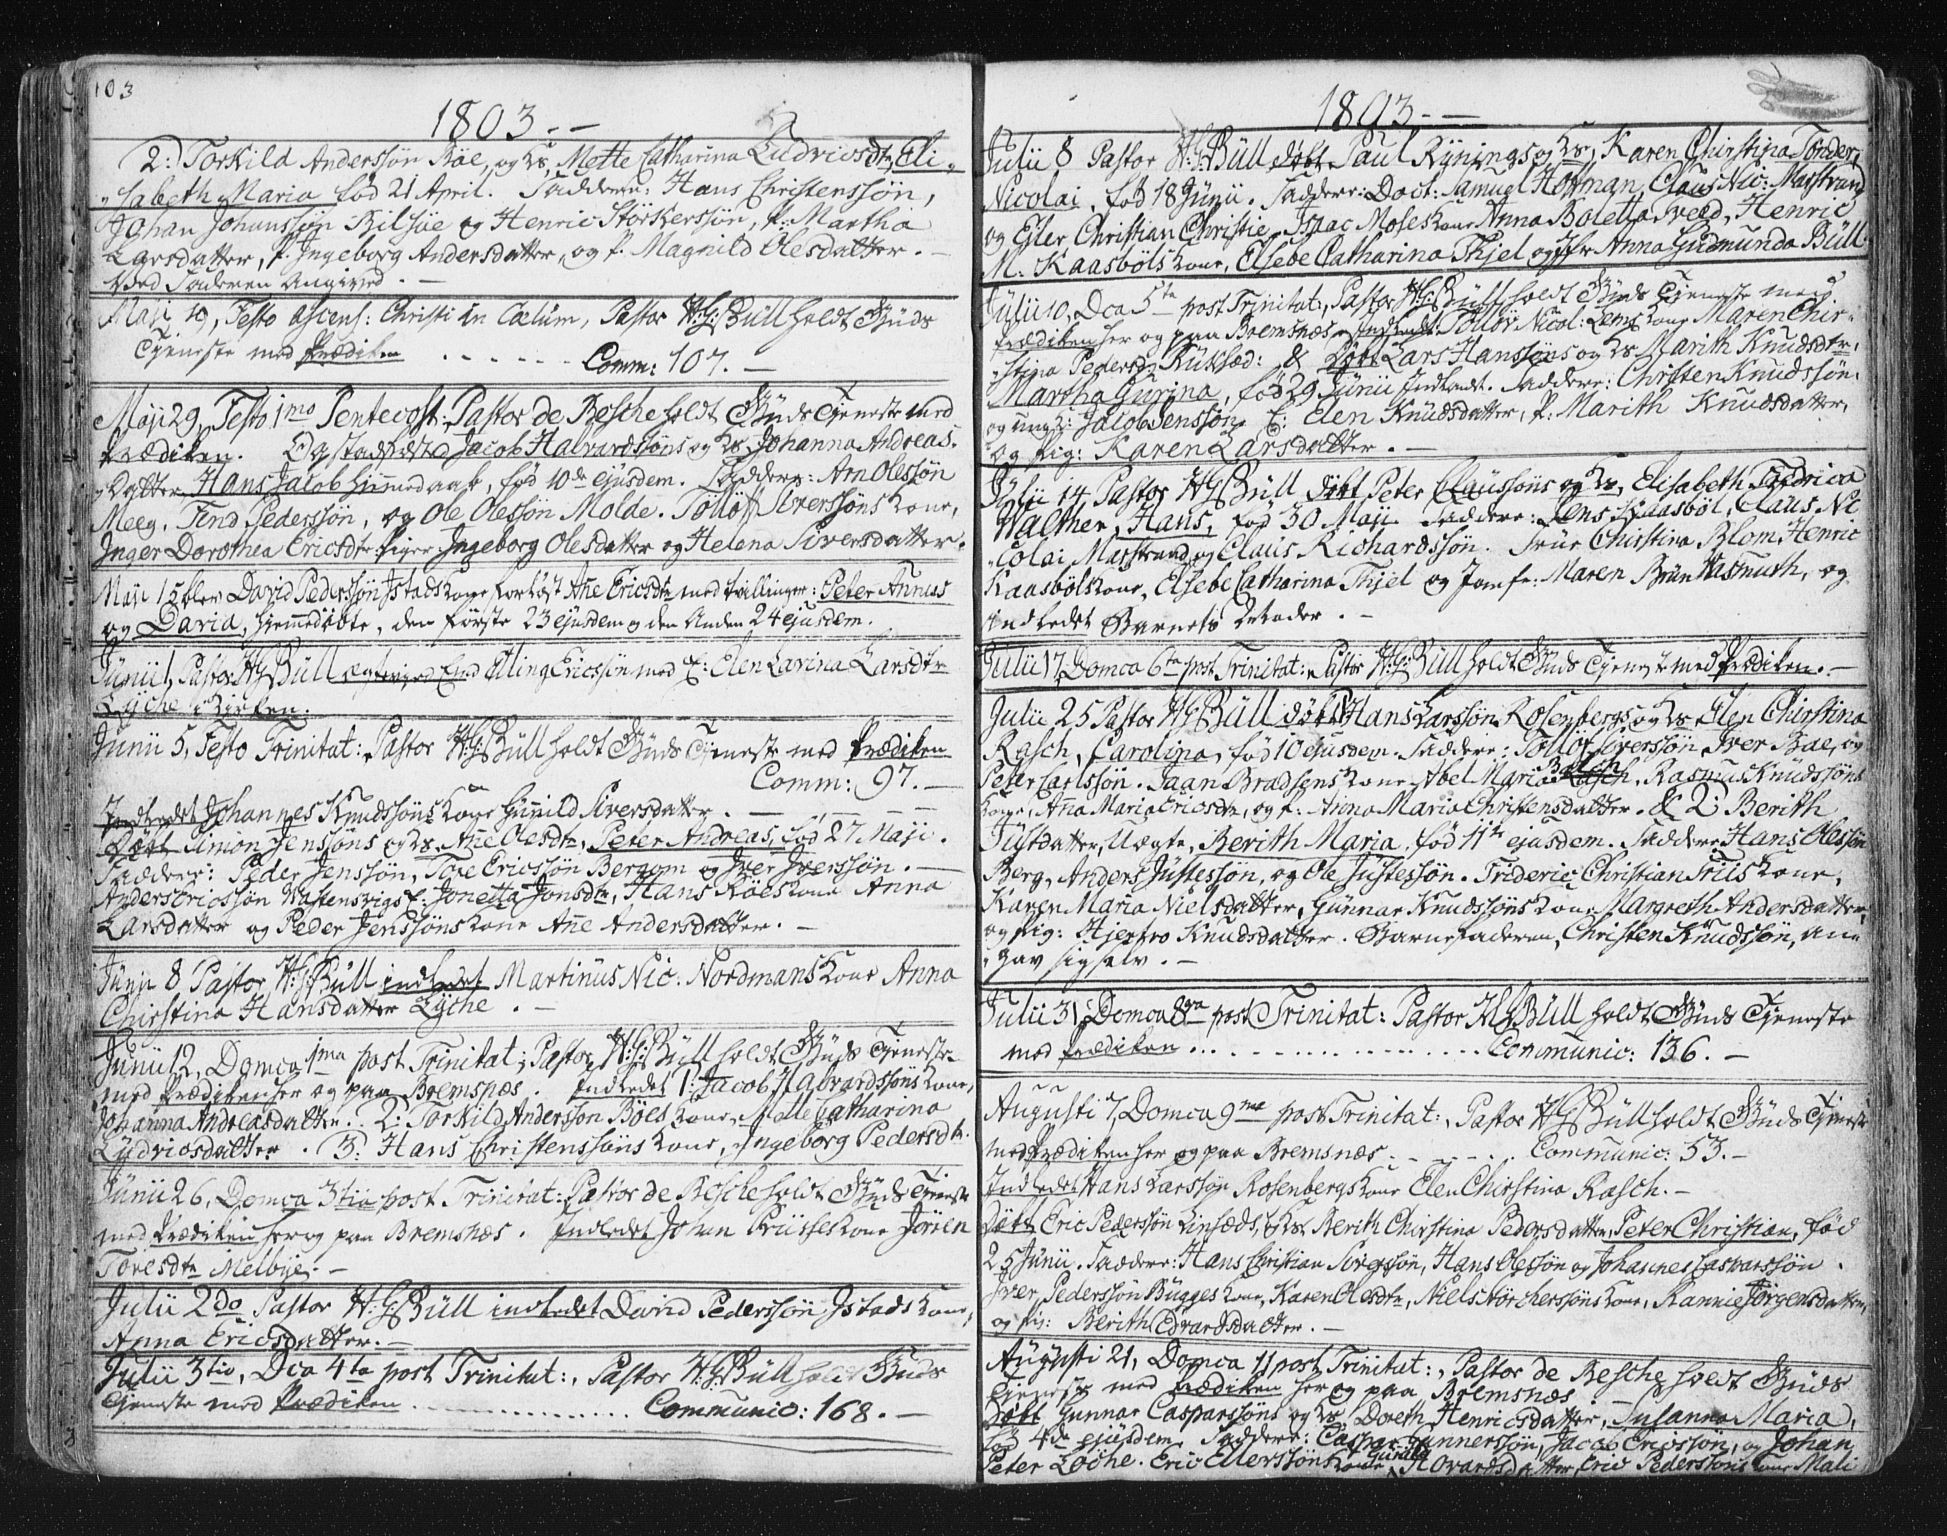 103
1803.--
2: Torkild Anderssøn Bøe, og Hs. Mette Catharina Ludvicsdtr, Eli-
sabeth Maria fød 21 April. Faddere: Hans Christenssøn,
Johan Johanssøn Kilsøe og Henric Størkerssøn, P: Martha
Larsdatter, P. Ingeborg Andersdatter, og P. Magnild Olesdatter.-
Ved Faderen Angived.-
Maji 19, Festo Ascens: Christi in Cælum, Pastor H:G:Büll holdt Guds
Tjeneste med Prædiken ------ Comm: 107.-
Maji 29, Festo 1mo Pentecost: Pastor de Besche holdt Guds Tjeneste med
Prædiken. Og stadfæstet Jacob Halvardssøns og Hs. Johanna Andreas-
datter Hans Jacob Hiemedaab, fød 10de ejusdem. Faddere: Arn Olessøn
Meeg, Find Pederssøn, og Ole Olessøn Molde. Tølløf Iverssøns Kone,
Inger Dorothea Ericsdtr, Piger Ingeborg Olesdatter og Helena Siversdatter.
Maji 15 blev David Pederssøn Istads Kone forløst Ane Ericsdtr med tvillinger: Peter Annus
og David, hjemedøbte, den første 23 ejusdem og den Anden 24 ejusdem.
Junii 1, Pastor HG Büll Egteviet Elling Ericssøn med E: Elen Larina Larsdtr
Lyche i Kirken.
Junii 5, Festo Trinitat: Pastor H:G:Büll holdt Guds Tjeneste med Prædiken
Comm: 97.-
Indledet Johannes Knudssøns Kone Gunild Siversdatter.-
Døbt Simon Jenssøns og Hs. Ane Olesdtr, Peter Andreas, fød 27 Maji.
Faddere: Peder Jenssøn, Tore Ericssøn Bergom og Iver Iverssøn.-
Anders Ericssøn Wattenvigs E: Jonetta Jonsdtr, Hans Røes Kone Anna
Larsdatter og Peder Jenssøns Kone Ane Andersdatter.-
Junii 8 Pastor H:G:Büll indledet Martinus Nic: Nordmans Kone Anna
Christina Hansdatter Lyche.-
Junii 12, Domca 1ma post Trinitat:, Pastor H:G:Büll holdt Guds Tjeneste
med Prædiken her og paa Bremsnæs. Indledet 1: Jacob Halvardssøns Kone,
Johanna Andreasdatter. 2: Torkild Anderssøn Bøes Kone, Mette Catharina
Ludvicsdatter. 3: Hans Christenssøns Kone, Ingeborg Pedersdtr.
Junii 26, Domca 3tia post Trinitat: Pastor de Besche holdt Guds Tjeneste
med Prædiken her og paa Bremsnæs. Indledet Johan Prüsses Kone Jøren
Toresdtr Melbye.-
Julii 2do Pastor H:G:Büll indledet David Pederssøn Istads Kone,
Anna Ericsdatter.-
Julii 3tio, Dca 4ta post Trinitat:, Pastor H:G:Büll holdt Guds
Tjeneste med Prædiken ............ Communic: 168.-
1803.--
Julii 8 Pastor H:G:Büll døbt Paul Rynings og Hs. Karen Christina Tønder,
Nicolai, fød 18 Junii. Faddere: Doct: Samuel Hofman, Claus Nic: Mastrand
og Ejler Christian Christie, Isaac Moses Kone Anna Boletta Sved, Henric
M: Kaasbøls Kone, Elsebe Catharina Thjel og Jfr Anna Gudmunda Büll.
Julii 10, Dca 5te post Trinitat:, Pastor H:G:Büll holdt Guds Tjeneste med
Prædiken her og paa Bremsnæs. Indledt: Tølløv Nicol: Lems Kone Maren Chir-
stina Pedersd. Buksæd: & Døbt Lars Hanssøns og Hs. Marith Knudsdtr,
Martha Gurina, fød 29 Junii Indladt. Faddere: Christen Knudssøn,
og ung K: Jacob Jenssøn, E: Elen Knudsdatter, P: Marith Knudsdatter,
og Pig: Karen Larsdatter.-
Julii 14 Pastor HG Büll døbt Peter Claussøns og Hs. Elisabeth Fredrica
Walther, Hans, fød 30 Maji. Faddere: Jens Kaasbøl, Claus Ni-
colai Mastrand og Claus Richardssøn. Frue Christina Blom, Henric
Kaasbøls Kone, Elsebe Catharina Thjel og Jomfr: Maren Brün Wasmuth, og
Indledet Barnets Moder.-
Julii 17, Domca 6ta post Trinitat: Pastor H:G:Büll holdt Guds Tjeneste med Prædiken.-
Julii 25 Pastor HG Büll døbt 1: Hans Larssøn Rosenbergs og Hs. Elen Chirstina
Rasch, Carolina, fød 10 ejusdem. Faddere: Tølløf Siverssøn, Iver Bae, og
Peter Carlssøn. Jaan Bradsens Kone, Abel Maria Balch, Rasmus Knudssøns
Kone, Anna Maria Ericsdtr, og P. Anna Maria Christensdatter. & 2: Berith
Justdatter, Uægte, Berith Maria, fød 11te ejusdem. Faddere Hans Olessøn
Berg, Anders Justessøn, og Ole Justessøn. Frideric Christian Friis Kone,
Karen Maria Nielsdatter, Gunnar Knudssøns Kone Margreth Andersdatter,
og Pig: Hjertro Knudsdatter. Barnefaderen, Christen Knudssøn, an-
gav sig selv.-
Julii 31, Domca 8va post Trinitat: Pastor HG Büll holdt Guds Tjeneste
med Prædiken .................. Communic: 136.-
Augusti 7, Domca 9na post Trinitat:, Pastor HG Büll holdt Guds Tjeneste
med Prædiken her og paa Bremsnæs ------ Communic: 53.-
Indledet Hans Larssøn Rosenbergs Kone Elen Chirstina Rasch.-
Døbt Eric Pederssøn Linsæds, og Hs. Berith Chirstina Pedersdatter, Peter Christian, fød
25 Junii. Faddere: Hans Christian Jørgssøn, Hans Olessøn og Johannes Casparssøn.
Iver Pederssøn Bugges Kone, Karen Olesdtr, Niels Størcherssøns Kone, Rannie Jørgensdatter,
og Pig: Berith Edvardsdatter.-
Augusti 21, Domca 11 post Trinitat:, Pastor de Besche holdt Guds
Tjeneste med Prædiken her og paa Bremsnæs.-
Døbt Gunnar Casparssøns og Hs. Doreth Henricsdatter, Susanna Maria,
fød 4de ejusdem. Faddere: Caspar Gunnerssøn, Jacob Ericssøn, og Johan
Peter Løche. Eric Ellerssøns Kone Gunild Hovardsdatter, Eric Pederssøns Kone Mali